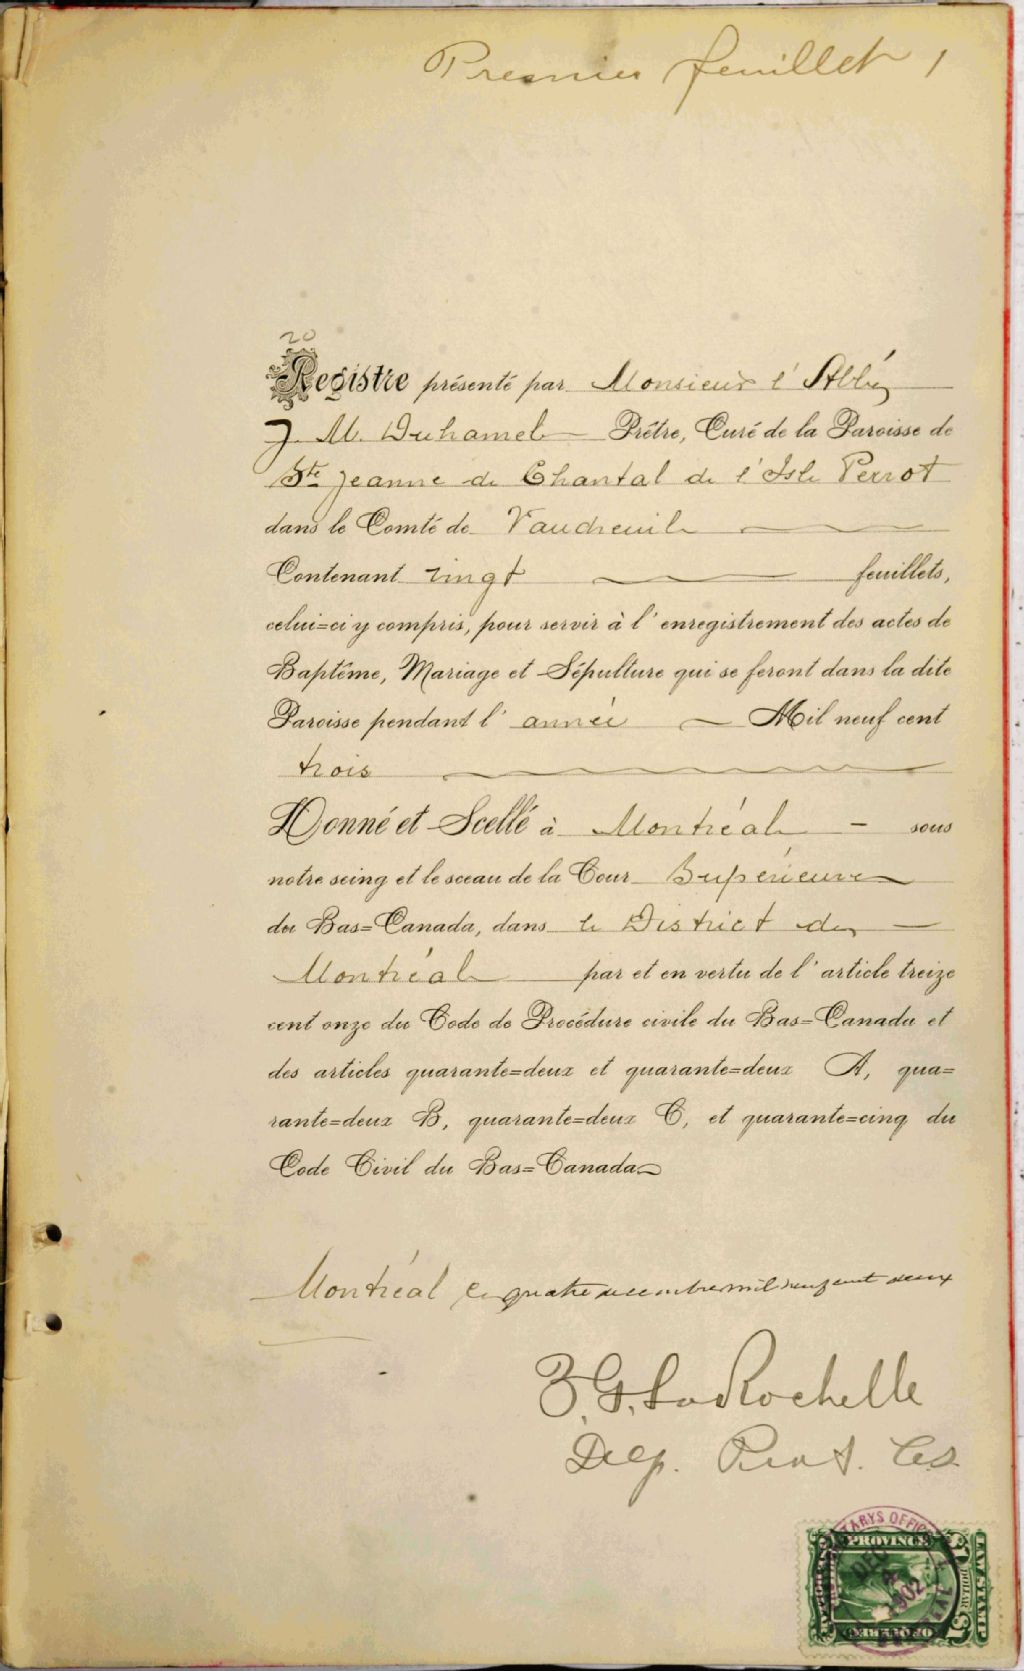 Premier feuillet 1
20
Registre présenté par Monsieur l'Abbé
J. M. Duhamel Prêtre, Curé de la Paroisse de
Ste Jeanne de Chantal de l'Isle Perrot
dans le Comté de Vaudreuil
Contenant vingt feuillets,
celui=ci y compris, pour servir à l'enregistrement des actes de
Baptême, Mariage et Sépulture qui se feront dans la dite
Paroisse pendant l'année Mil neuf cent
trois
Donné et Scellé à Montréal sous
notre seing et le sceau de la Cour Supérieure
du Bas=Canada, dans le District de
Montréal par et en vertu de l'article treize
cent onze du Code de Procédure civile du Bas=Canada et
des articles quarante=deux et quarante=deux A, qua=
rante=deux B, quarante=deux C, et quarante=cinq du
Code Civil du Bas=Canada
Montréal le quatre décembre mil neuf cent deux
Z. G. LaRochelle
Dep. Prot. C.S.
PROVINCE
LAW STAMP
DOLLAR
OF QUEBEC
DEC
4
1902